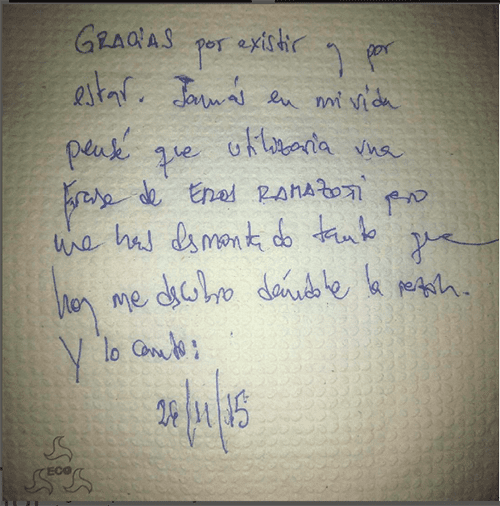 GRACIAS por existir y por
estar. Jamás en mi vida
pensé que utilizaria una
frase de EROS RAMAZOTTI pero
me has desmontado tanto que
hoy me descubro dándote la razón.
Y lo canto:
26/11/15
ECO